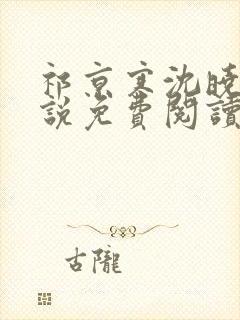 祁京寒沈晚
說免費閱讀
古隴